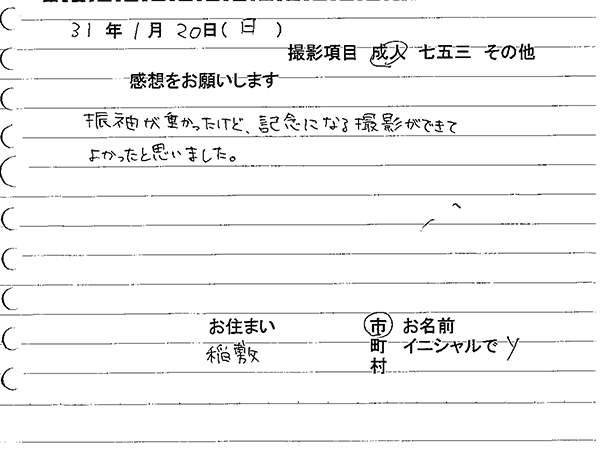 31年1月20日(日)
撮影項目 成人 七五三 その他
感想をお願いします
振袖が重かったけど、記念になる撮影ができて
よかったと思いました。
お住まい 市 お名前
稲敷 町 イニシャルで Y
村